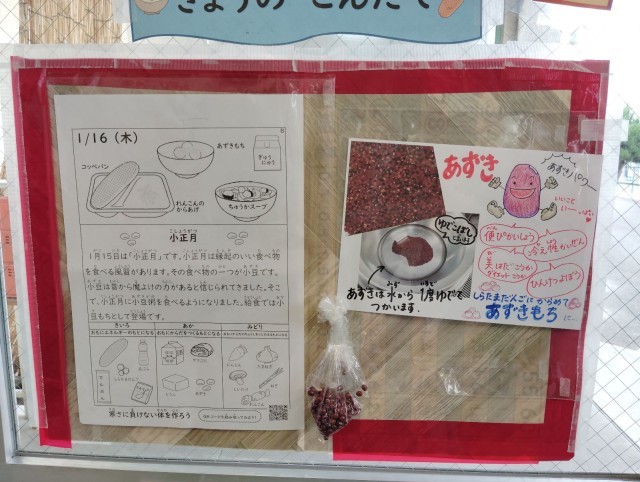 きょうの こんだて
1/16（木）
あずきもち
ぎゅうにゅう
コッペパン
れんこんのからあげ
ちゅうかスープ
小正月
1月15日は「小正月」です。小正月は縁起のいい食べ物
を食べる風習があります。その食べ物の一つが小豆です。
小豆は昔から魔よけの力があると信じられてきました。そこ
で、小正月に小豆粥を食べるようになりました。給食では小
豆もちとして登場です。
きいろ
あか
みどり
寒さに負けない体を作ろう
あずき
あずきパワー
いいこと
いーいっぱい
ゆでこぼし
あずきは水から1度ゆでて
つかいます。
便ぴかいしょう
冷え性かいぜん
美はだこうか
ひんけつよぼう
しらたまだんごにからめて
あずきもちに